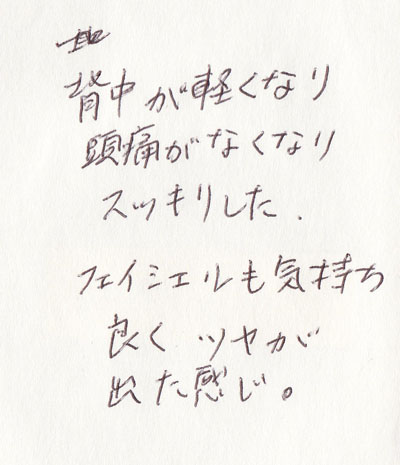 背中が軽くなり
頭痛がなくなり
スッキリした.
フェイシェルも気持ち
良く ツヤが
出た感じ。